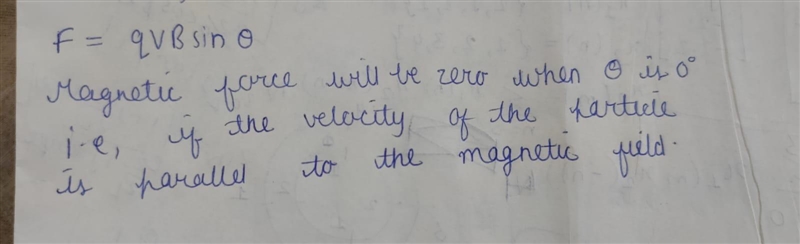 F = qVB sin θ
Magnetic force will be zero when θ is 0°
i.e, if the velocity of the particle
is parallel to the magnetic field.